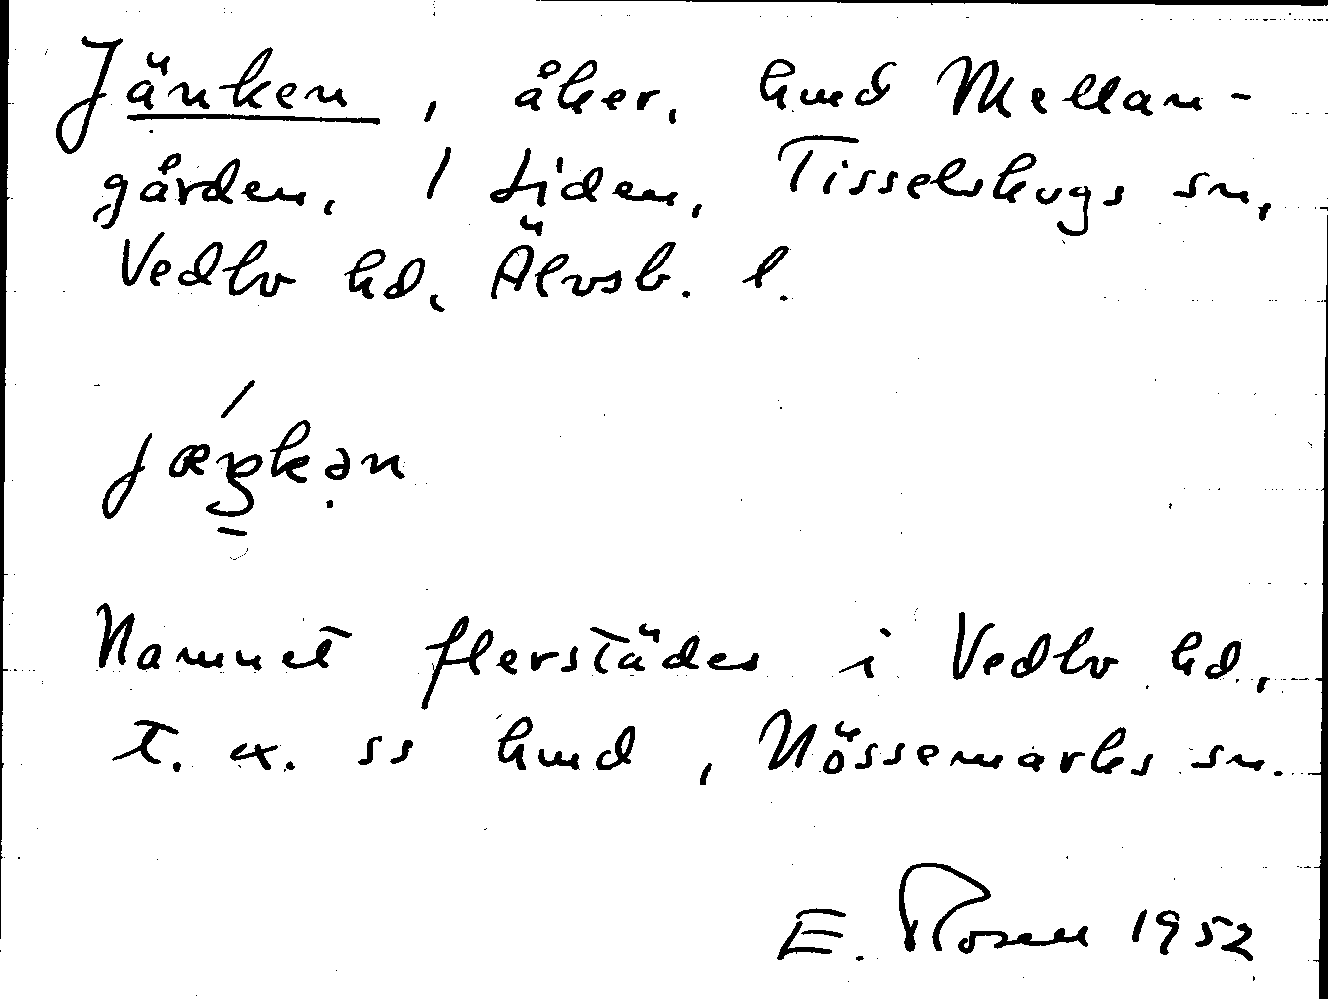 Jänken, åker, hmd Mellan-
gården, 1 Liden, Tisselskogs sn,
Vedbo hd, Älvsb. l.
Namnet flerstädes i Vedbo hd,
t. ex. ss hmd, Nössemarks sn.
E. Rosell 1952